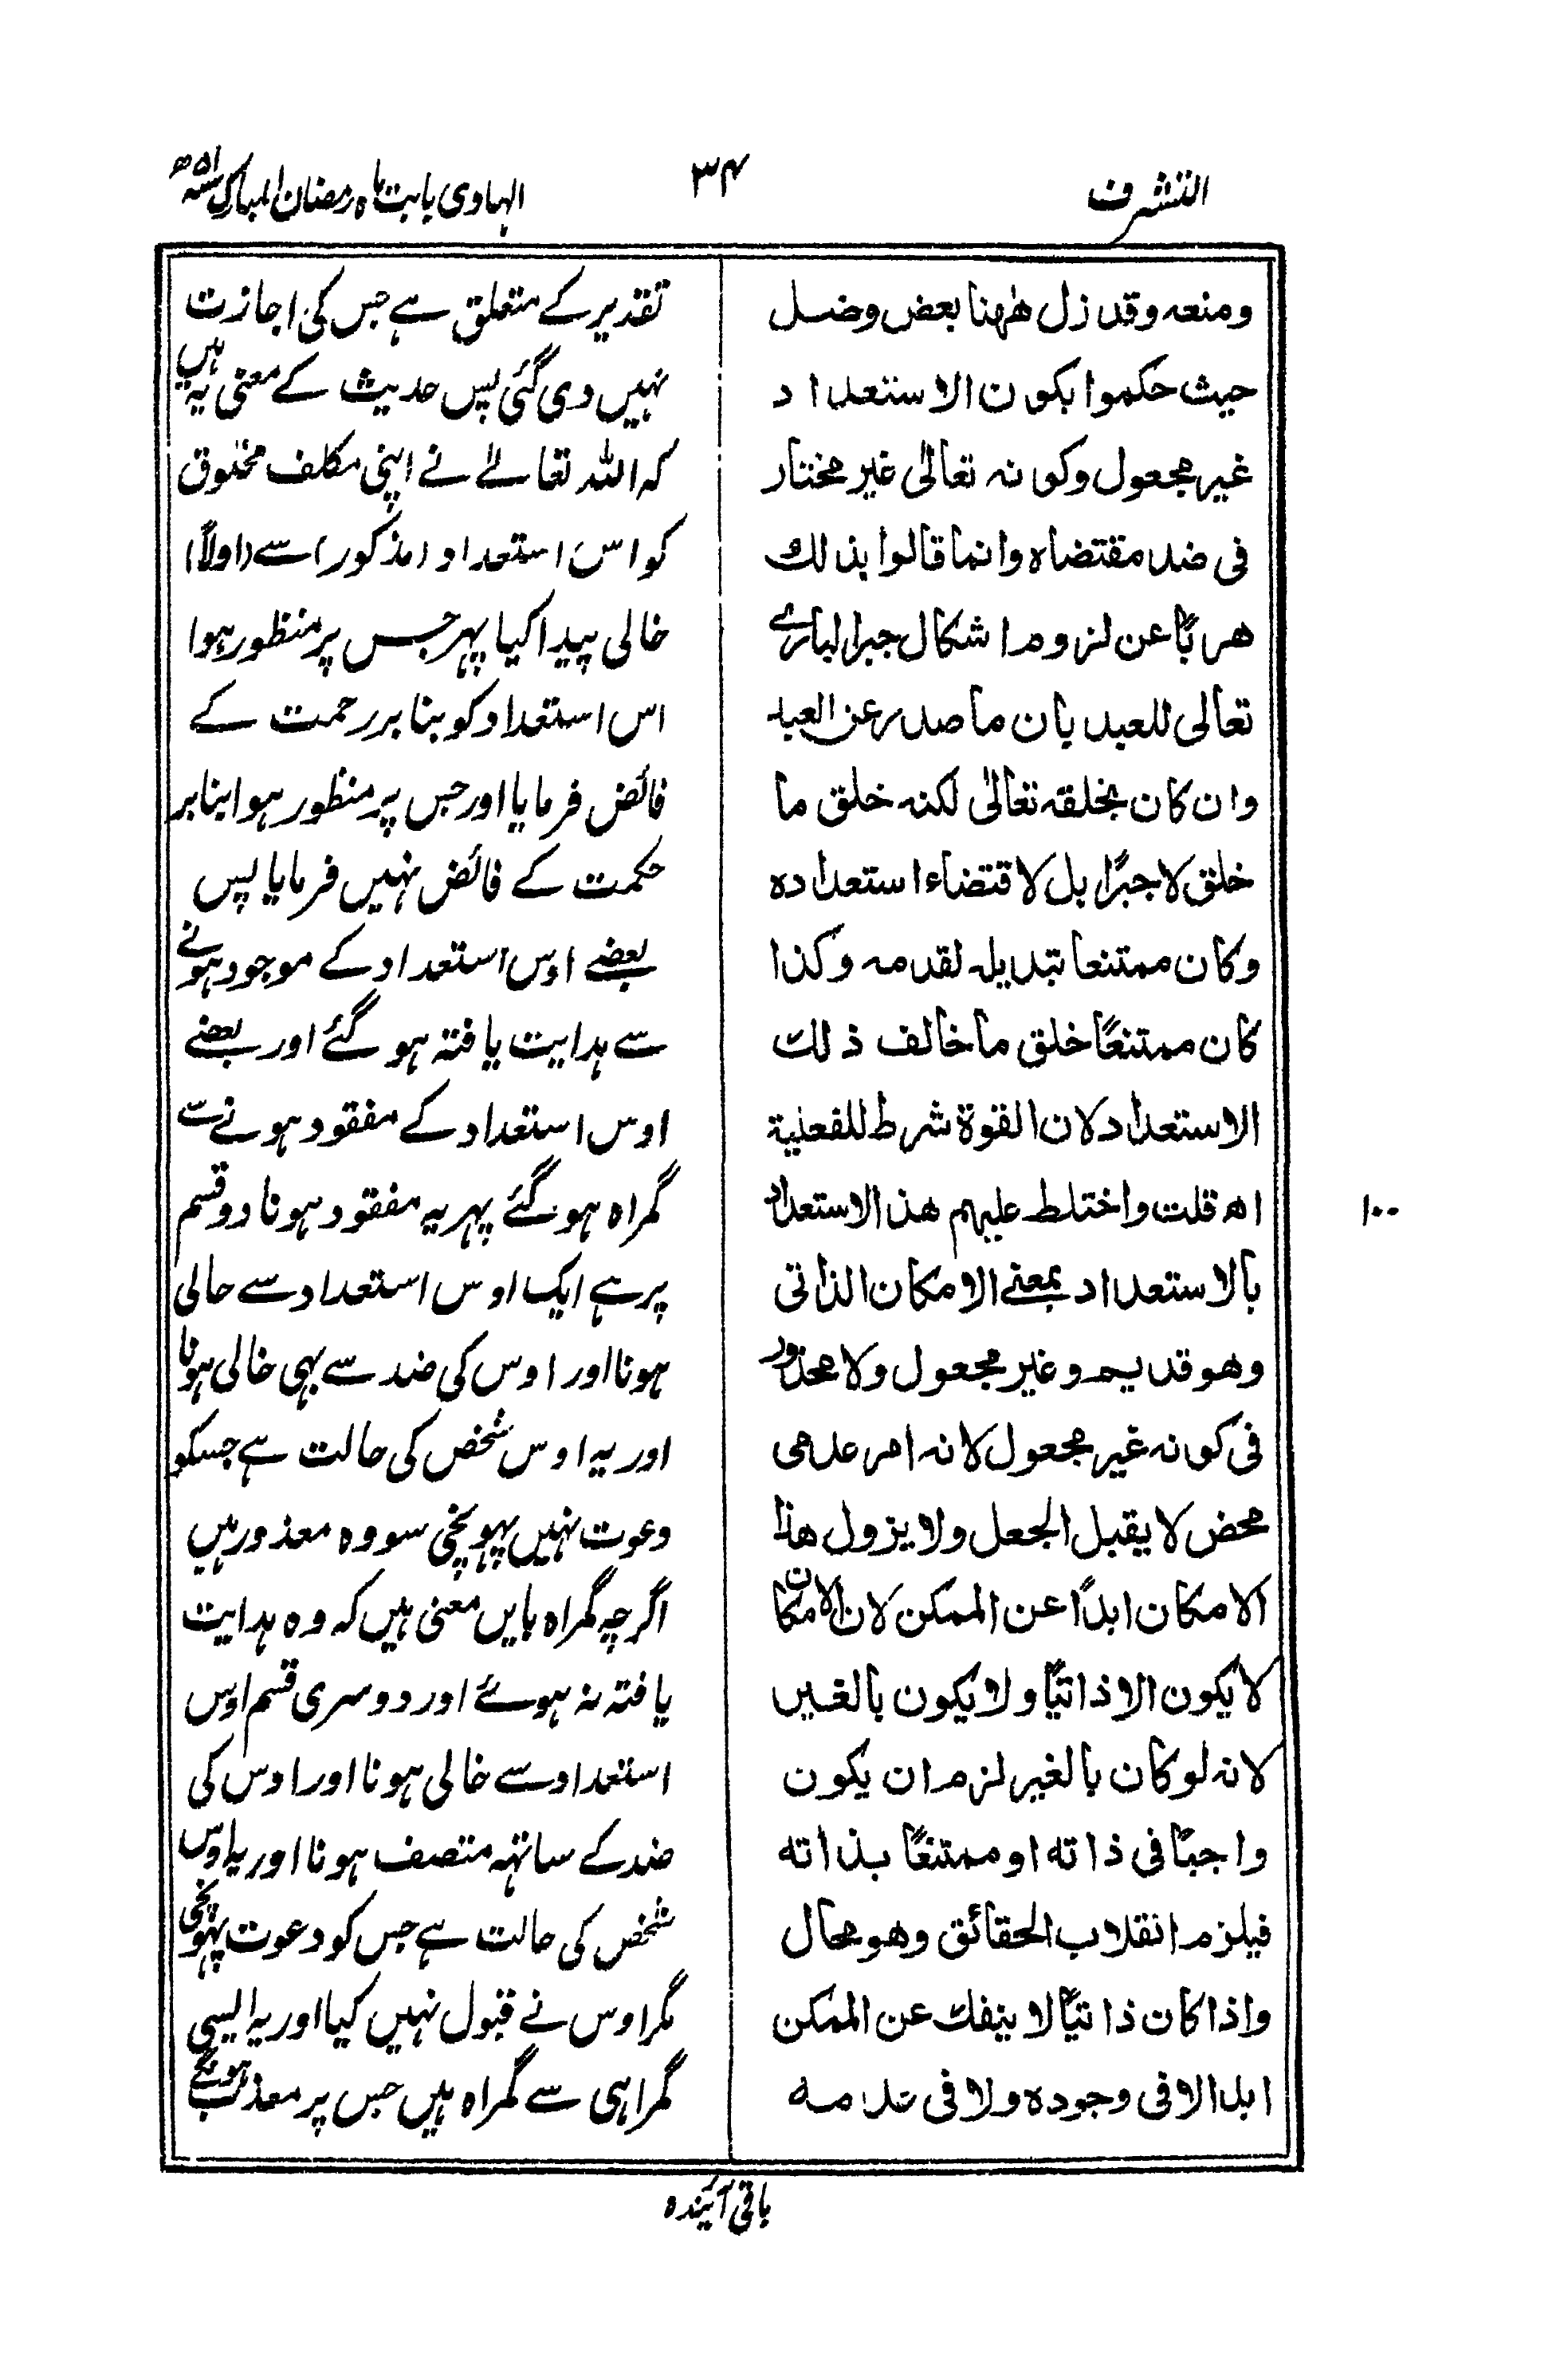 التشرف
۳۴
الہادی بابت ماہ رمضان المبارک سنہ ۵۱ھ
ومنعہ وقد زل ھٰھنا بعض وضل
حیث حکموا بکون الاستعداد
غیر مجعول وکونہ تعالٰی غیر مختار
فی ضد مقتضاہ وانما قالوا بذلك
ھربًا عن لزوم اشکال جبر الباری
تعالی للعبد بان ما صدر عن العبد
وان کان بخلقہ تعالٰی لکنہ خلق ما
خلق لا جبرًا بل لاقتضاء استعدادہ
وکان ممتنعا تبدیلہ لقدمہ وکذا
کان ممتنعًا خلق ما خالف ذلك
الاستعداد لان القوة شرط للفعلیة
اھ قلت واختلط علیہم ھذا الاستعداد
بالاستعداد بمعنے الامکان الذاتی
وھو قدیم وغیر مجعول ولا محذور
فی کونہ غیر مجعول لانہ امر عدمی
محض لا یقبل الجعل ولا یزول ھذا
الامکان ابدًا عن الممکن لان الامکان
لا یکون الا ذاتیًا ولا یکون بالغیر
لانہ لو کان بالغیر لزم ان یکون
واجبًا فی ذاته او ممتنعًا بذاته
فیلزم انقلاب الحقائق وھو محال
واذا کان ذاتیًا لا ینفك عن الممکن
ابدا لا فی وجودہ ولا فی عدمہ
تقدیر کے متعلق ہے جس کی اجازت
نہیں دی گئی پس حدیث کے معنی یہ ہیں
کہ اللہ تعالےٰ نے اپنی مکلف مخلوق
کو اس استعداد (مذکور) سے (اولاً)
خالی پیدا کیا پہر جس پر منظور ہوا
اس استعداد کو بنابر رحمت کے
فائض فرمایا اور جس پر منظور ہوا بنابر
حکمت کے فائض نہیں فرمایا پس
بعضے اوس استعداد کے موجود ہونے
سے ہدایت یافتہ ہو گئے اور بعضے
اوس استعداد کے مفقود ہونے سے
گمراہ ہو گئے پہر یہ مفقود ہونا دو قسم
پر ہے ایک اوس استعداد سے خالی
ہونا اور اوس کی ضد سے بہی خالی ہونا
اور یہ اوس شخص کی حالت ہے جسکو
دعوت نہیں پہونچی سو وہ معذور ہیں
اگرچہ گمراہ بایں معنی ہیں کہ وہ ہدایت
یافتہ نہ ہوئے اور دوسری قسم اوس
استعداد سے خالی ہونا اور اوس کی
ضد کے ساتہہ متصف ہونا اور یہ اوس
شخص کی حالت ہے جس کو دعوت پہونچی
مگر اوس نے قبول نہیں کیا اور یہ ایسی
گمراہی سے گمراہ ہیں جس پر معذب ہونگے
۱۰۰
باقی آئندہ